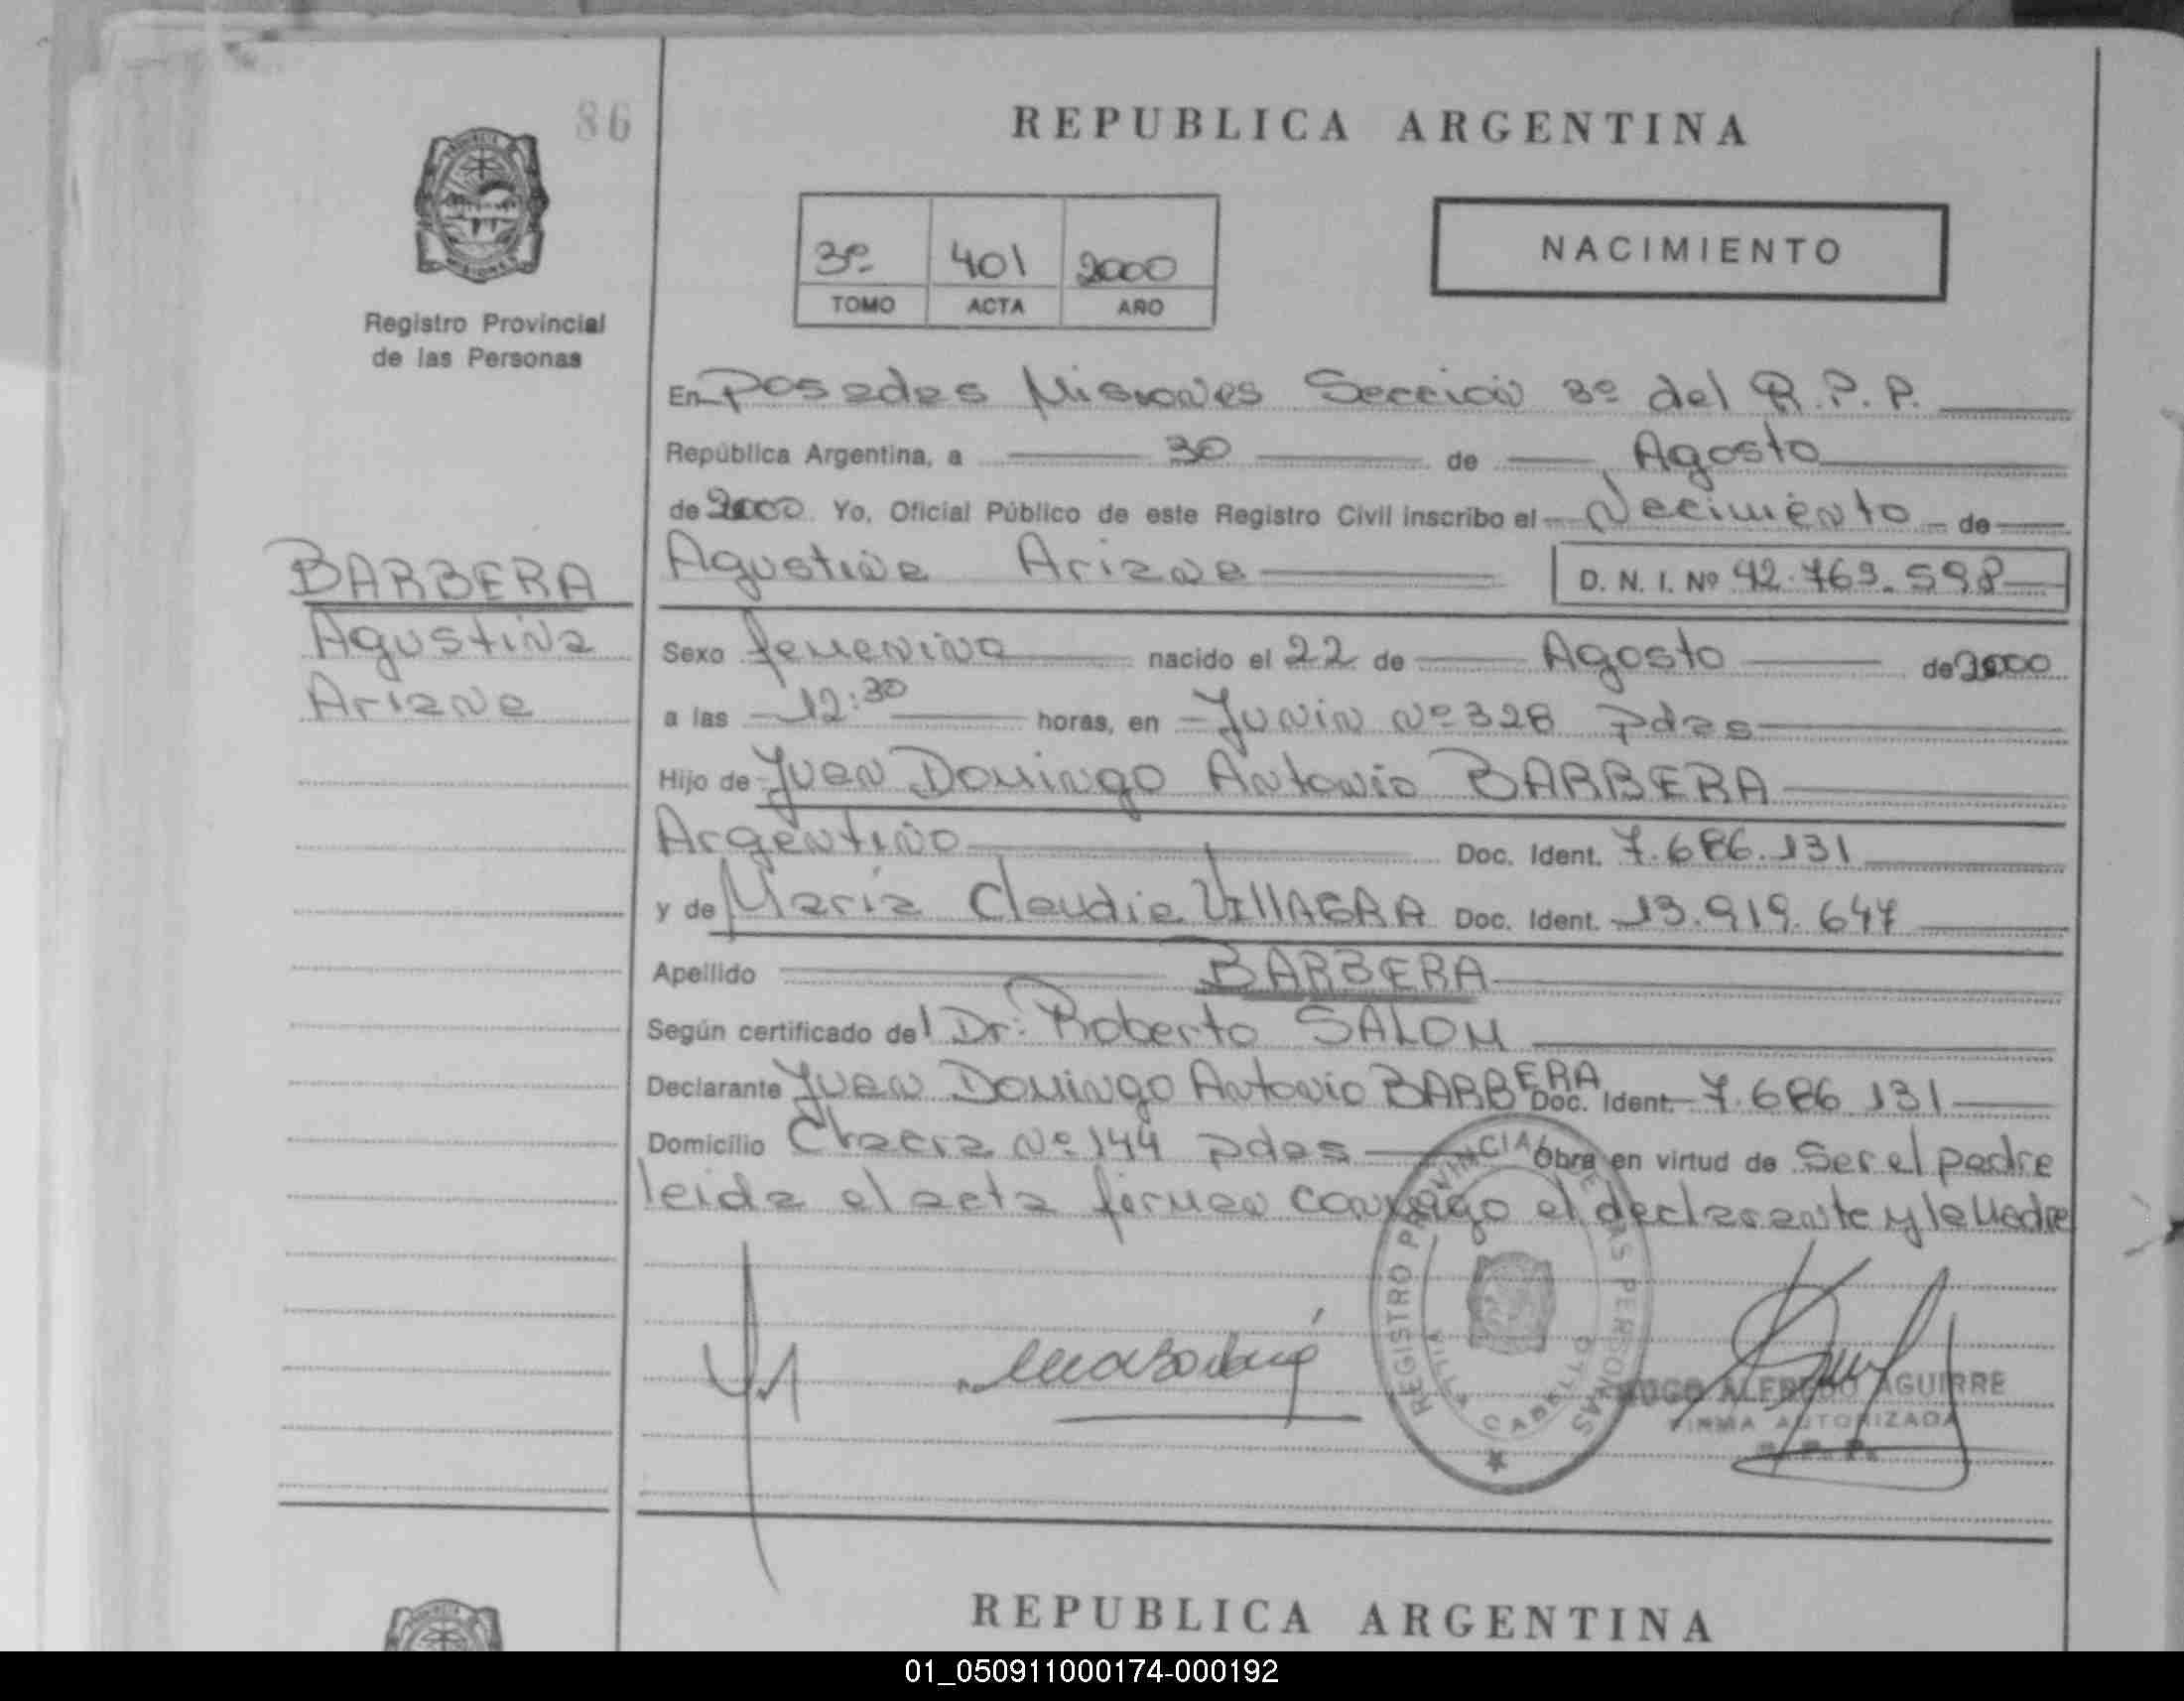 86
REPUBLICA ARGENTINA
3º 401 2000
TOMO ACTA AÑO
NACIMIENTO
Registro Provincial
de las Personas
En Posadas Misiones Sección 3º del R.P.P.
República Argentina, a 30 de Agosto
de 2000. Yo, Oficial Público de este Registro Civil inscribo el Nacimiento de
BARBERA
Agustina
Ariana
Agustina Ariana D. N. I. Nº 42.769.598
Sexo femenino nacido el 22 de Agosto de 2000
a las 12:30 horas, en Junin Nº 328 Pdas
Hijo de Juan Domingo Antonio BARBERA
Argentino Doc. Ident. 7.686.131
y de María Claudia VIllAGRA Doc. Ident. 13.919.647
Apellido BARBERA
Según certificado del Dr: Roberto SALOM
Declarante Juan Domingo Antonio BARBERA Doc. Ident. 7.686.131
Domicilio Chacra Nº 144 Pdas Obra en virtud de Ser el padre
leida el acta firman conmigo el declarante y la Madre
REGISTRO PROVINCIAL DE LAS PERSONAS
HUGO ALFREDO AGUIRRE
FIRMA AUTORIZADA
R. P. P.
REPUBLICA ARGENTINA
01_050911000174-000192